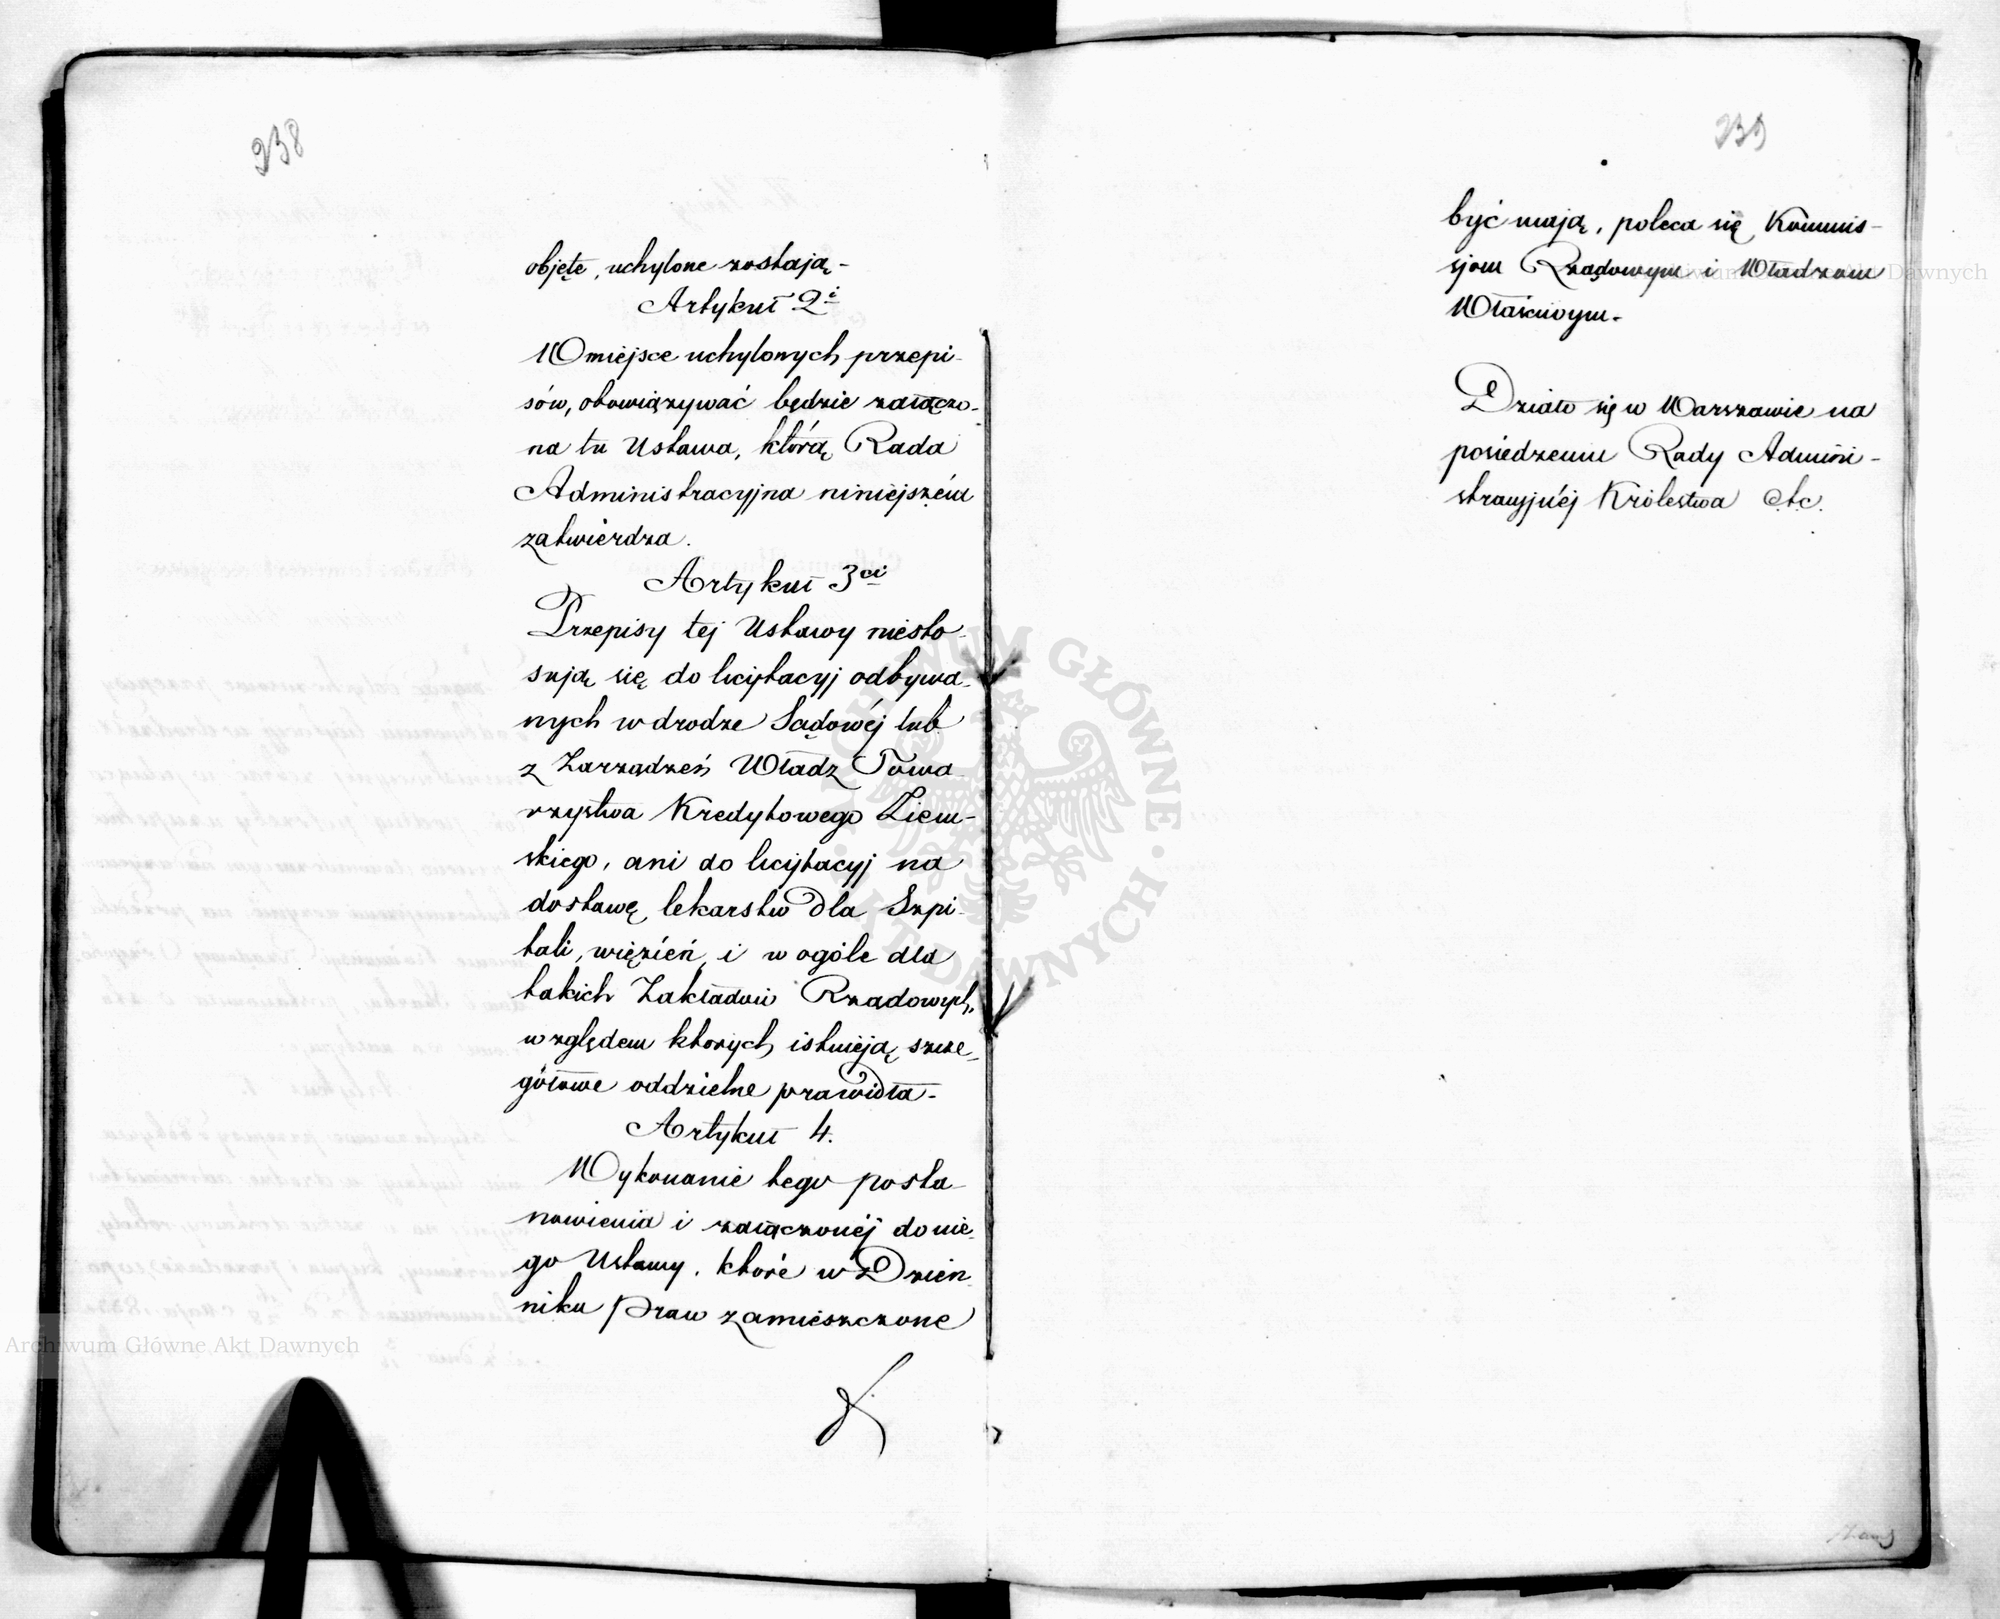 238
objęte, uchylone zostają -
Artykuł 2i
W miejsce uchylonych przepi-
sów, obowiązywać będzie załączo-
na tu Ustawa, którą Rada
Administracyjna niniejszém
zatwierdza.
Artykuł 3ci
Przepisy tej Ustawy niesto-
sują się do licytacyj odbywa-
nych w drodze Sądowéj lub
z Zarządzeń Władz Towa-
rzystwa Kredytowego Ziem-
skiego, ani do licytacyj na
dostawę lekarstw dla Szpi-
tali, więzień, i w ogóle dla
takich Zakładów Rządowych,
względem których istnieją szcze-
gółowe oddzielne prawidła -
Artykuł 4.
Wykonanie tego posta-
nowienia i załączonéj do nie-
go Ustawy, które w Dzien-
niku Praw zamieszczone
239
być mają, poleca się Kommis-
sjom Rządowym i Władzom
Właściwym -
Działo się w Warszawie na
posiedzeniu Rady Admini-
stracyjnéj Królestwa etc.
ARCHIWUM GŁÓWNE AKT DAWNYCH
Archiwum Główne Akt Dawnych
Archiwum Główne Akt Dawnych